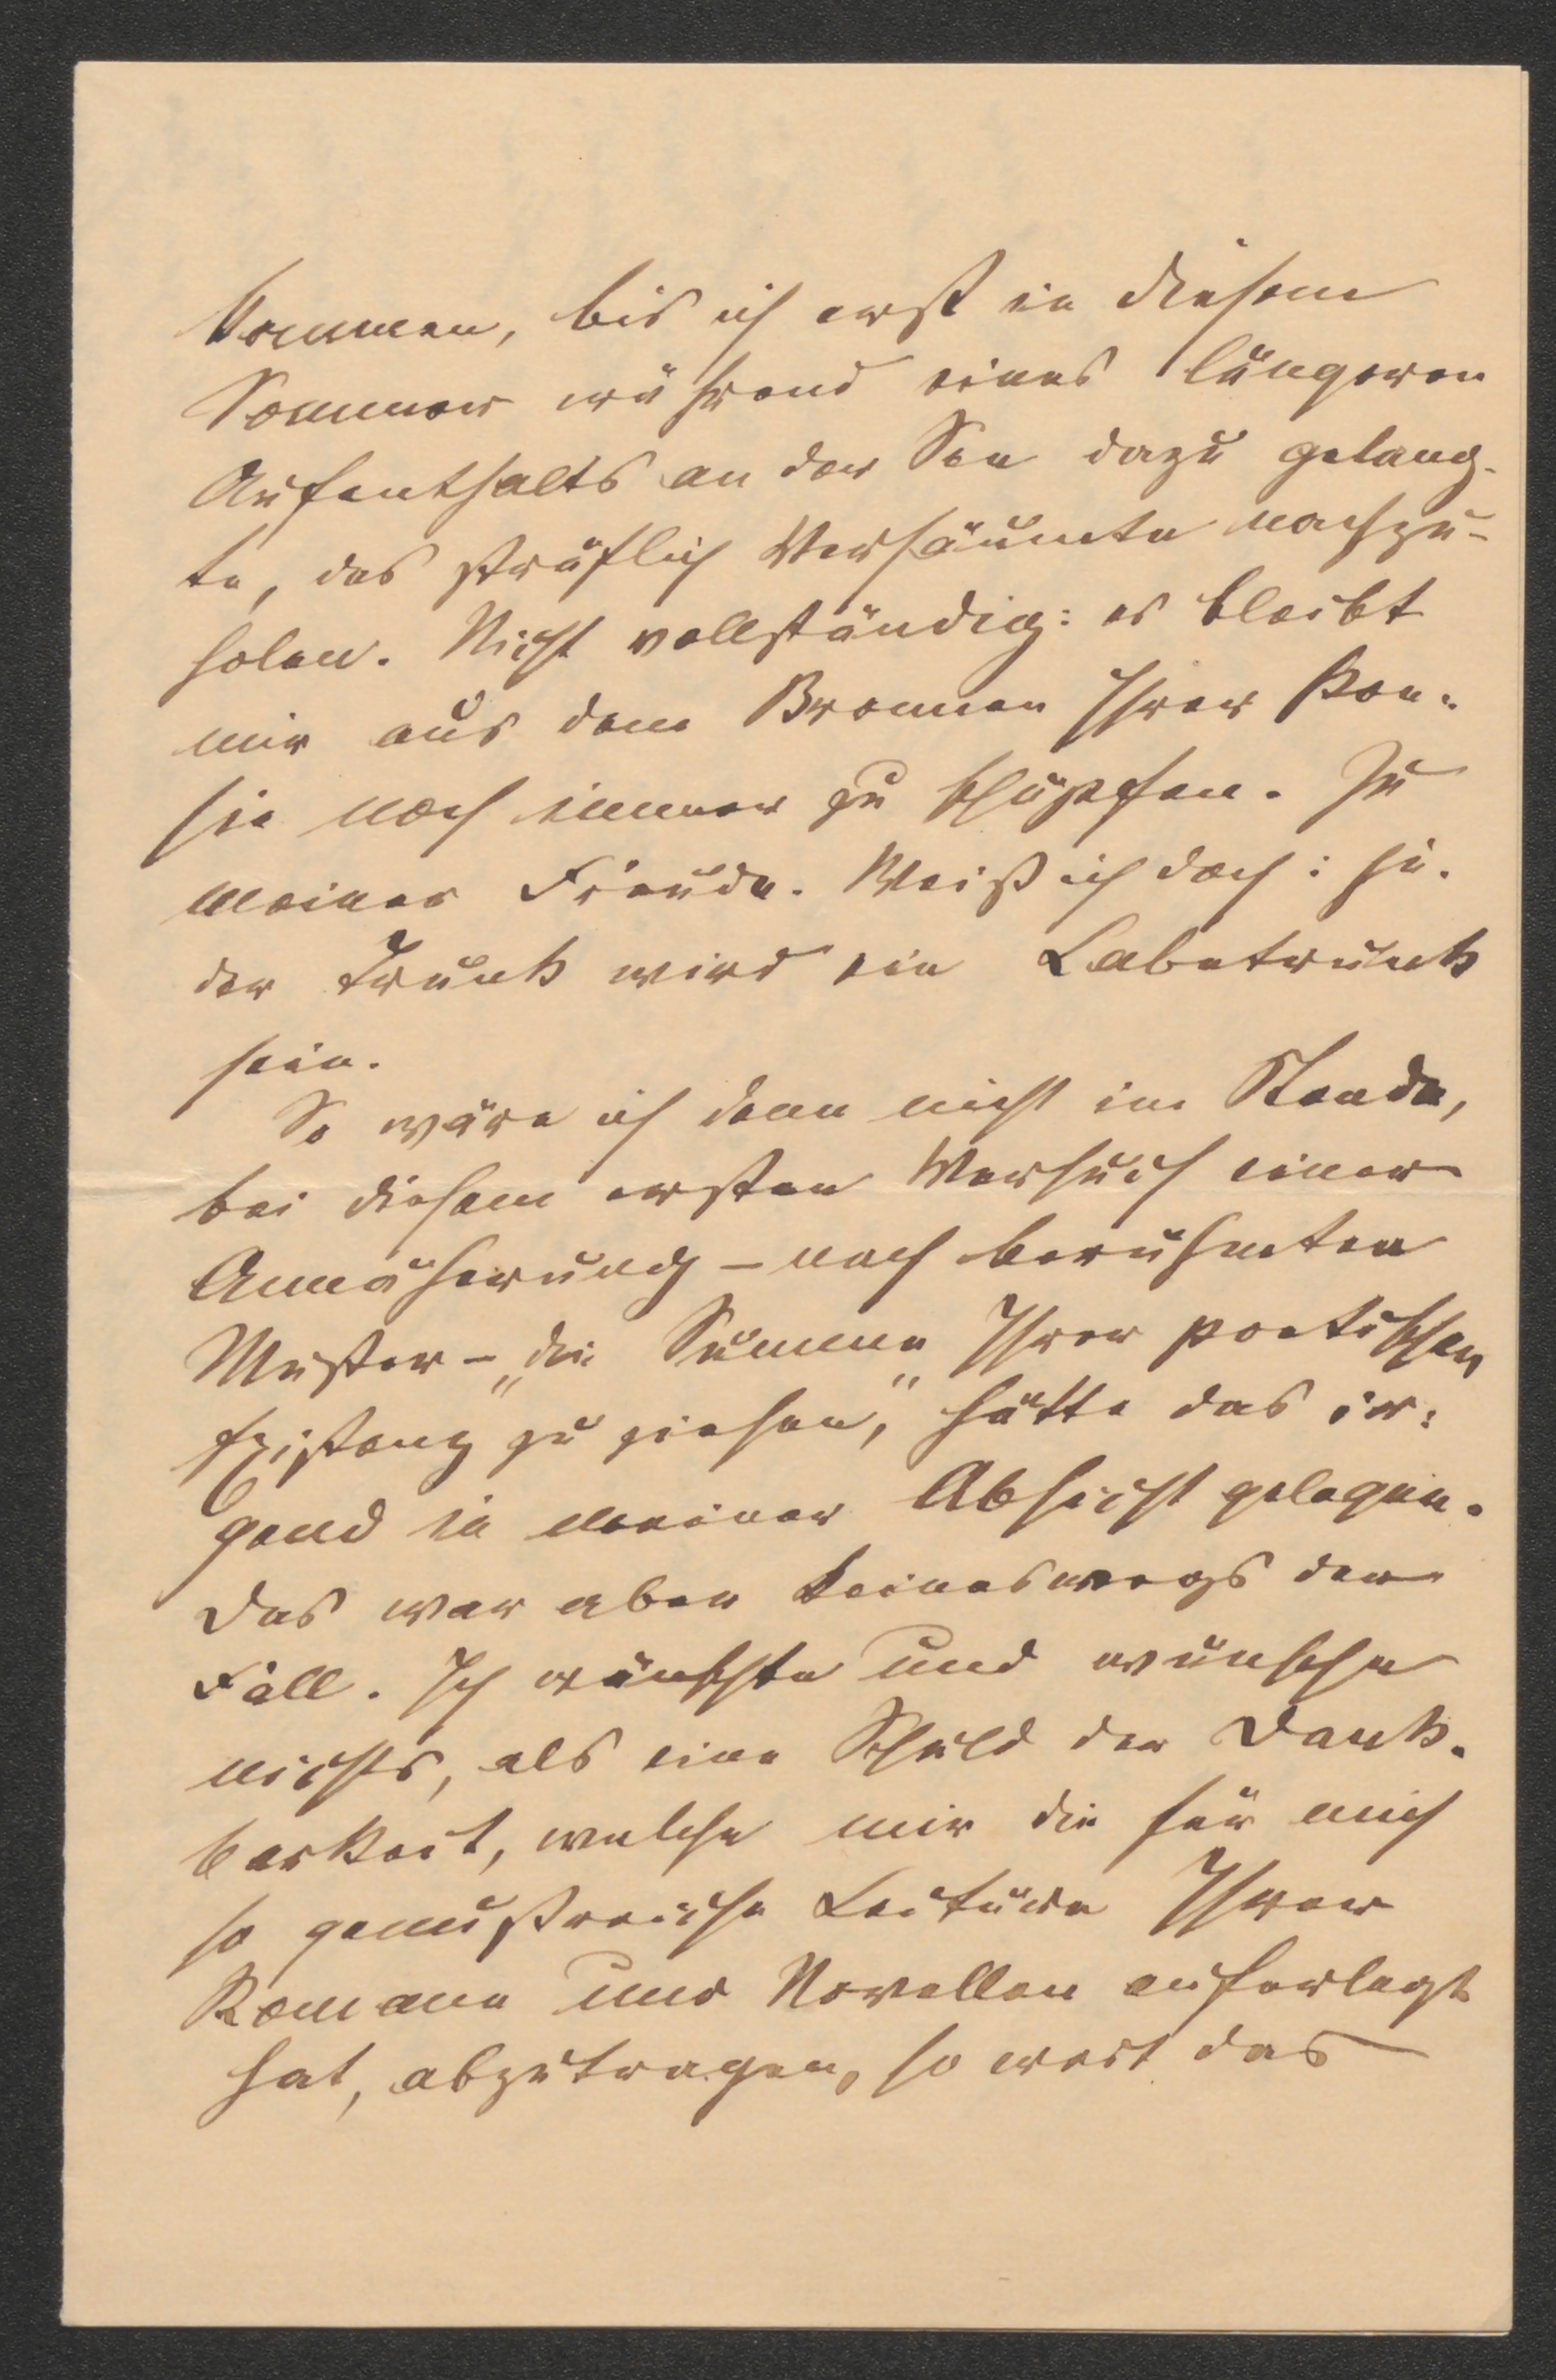 kommen, bis ich erst in diesem
Sommer während eines längeren
Aufenthalts an der See dazu gelang-
te, das sträflich Versäumte nachzu-
holen. Nicht vollständig: es bleibt
mir aus dem Bronnen Ihrer Poe-
sie noch immer zu schöpfen. Zu
meiner Freude. Weiß ich doch: je-
der Trunk wird ein Labetrunk
sein.
So wäre ich denn nicht im Stande,
bei diesem ersten Versuch einer
Annäherung – nach berühmten
Muster – „die Summe Ihrer poetischen
Existenz zu ziehen", hätte das ir-
gend in meiner Absicht gelegen.
Das war aber keineswegs der
Fall. Ich wünschte und wünsche
nichts, als eine Schuld der Dank-
barkeit, welche mir die für mich
so genußreiche Lectüre Ihrer
Romane und Novellen auferlegt
hat, abzutragen, so weit das